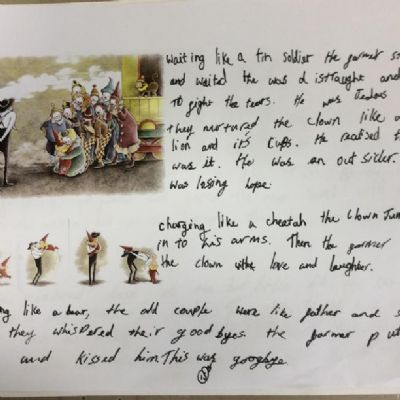 Waiting like a tin soldier the farmer st
and waited the was distraught and
To fight the tears. He was Jealous
they nurtured the clown like a
lion and it's Cubs. He realised t
was it. He was an outsider.
was losing hope.
charging like a cheetah the clown Jum
in to his arms. Then the farmer
the clown with love and laughter.
ng like a bear, the odd couple were like father and s
they whispered their goodbyes. the farmer put
and kissed him. This was goodbye.